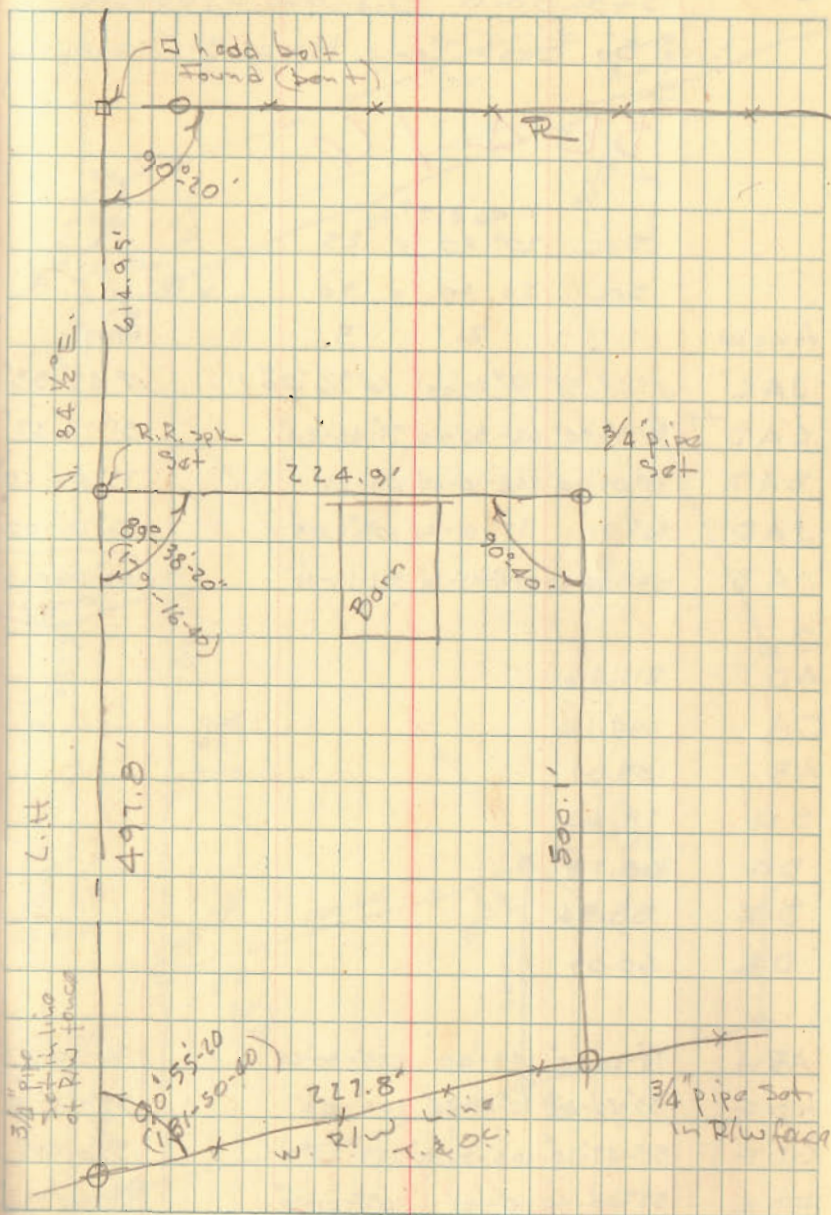 □ hedd bolt
Found (bent)
90°-20'
614.95'
N. 84 ½° E.
R.R. spk
Set
224.9'
3/4" pipe
Set
89°-38'-20"
(179-16-40)
Barn
90°-40'
C.H
497.8'
500.1'
3/4" pipe
Set in line
of R/W fence
90°-55'-20
(181-50-40)
227.8'
W. R/W Line
T. & O.C.
3/4" pipe Set
in R/W fence